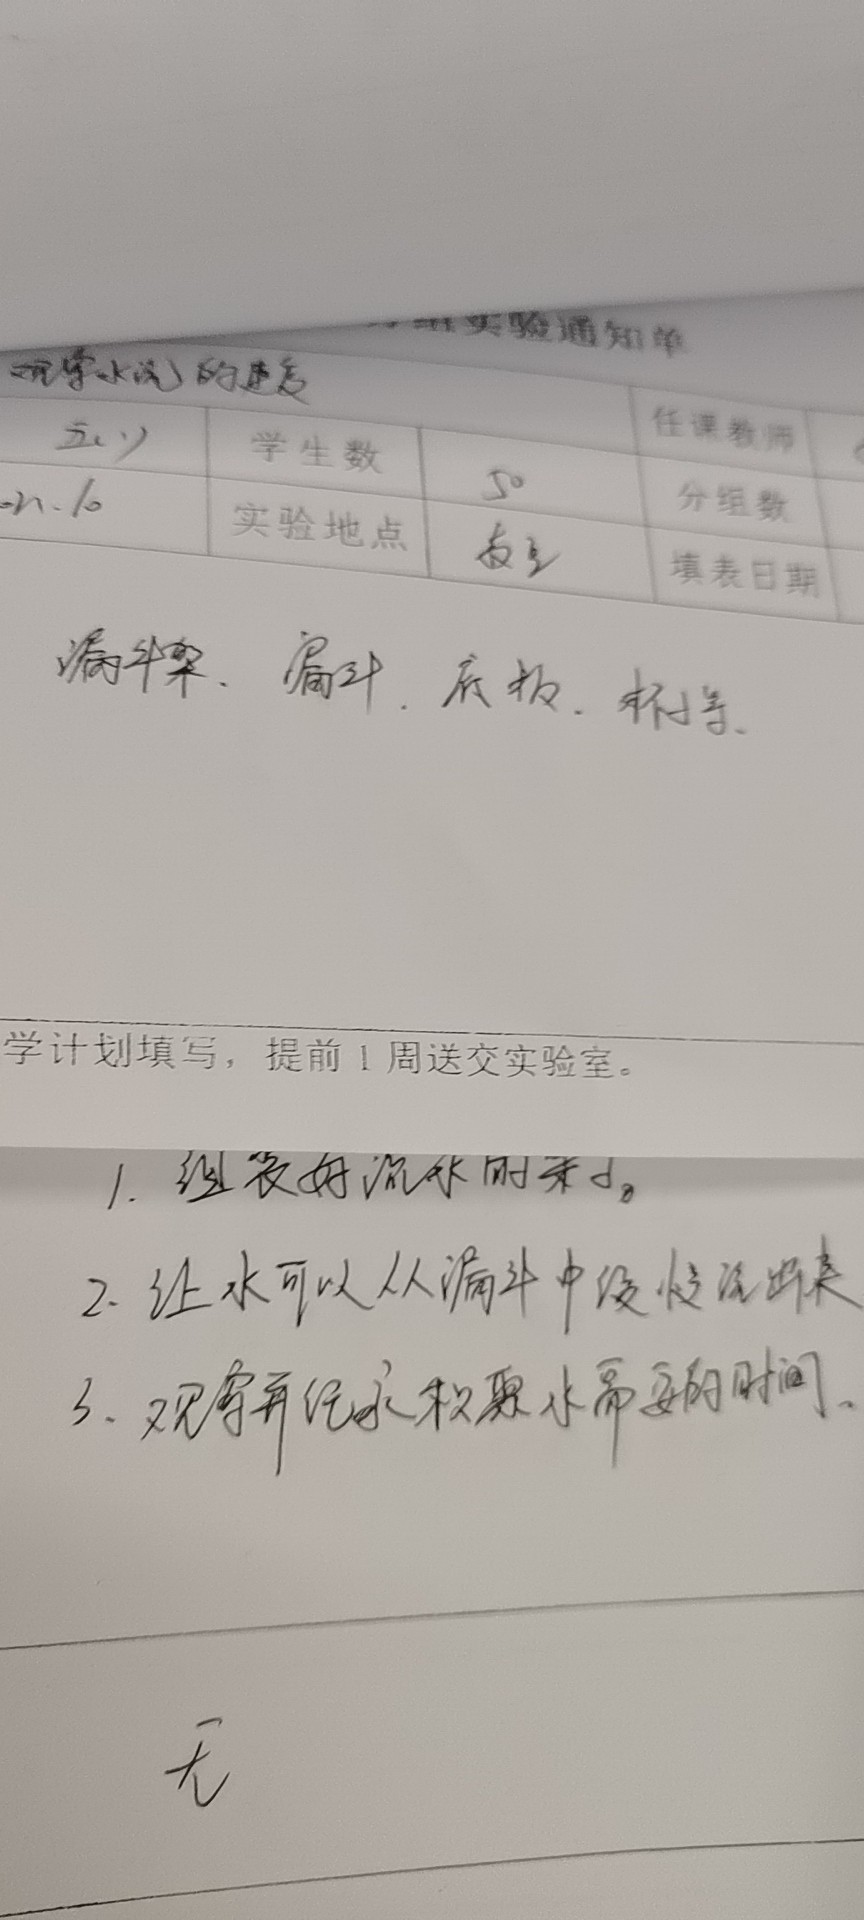 实验通知单
观察水流的速度
任课教师
五(1) 学生数 50 分组数
实验地点 教室 填表日期
漏斗架、漏斗、底板、杯子等、
学计划填写，提前1周送交实验室。
1. 组装好流水时架子。
2. 让水可以从漏斗中缓慢流出来
3. 观察并记录积聚水需要的时间、
无